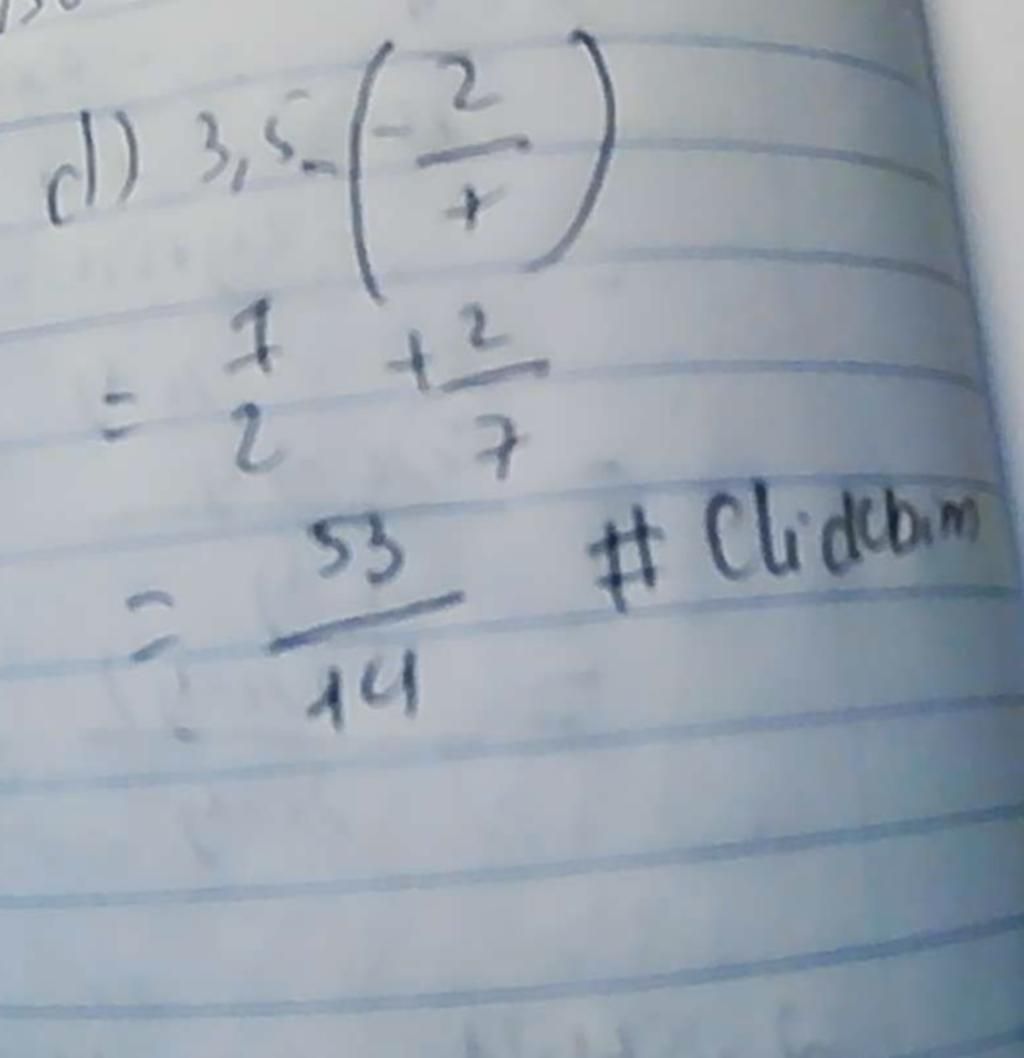 d) 3,5 - (-2/7)
= 7/2 + 2/7
= 53/14 # Clidcbim